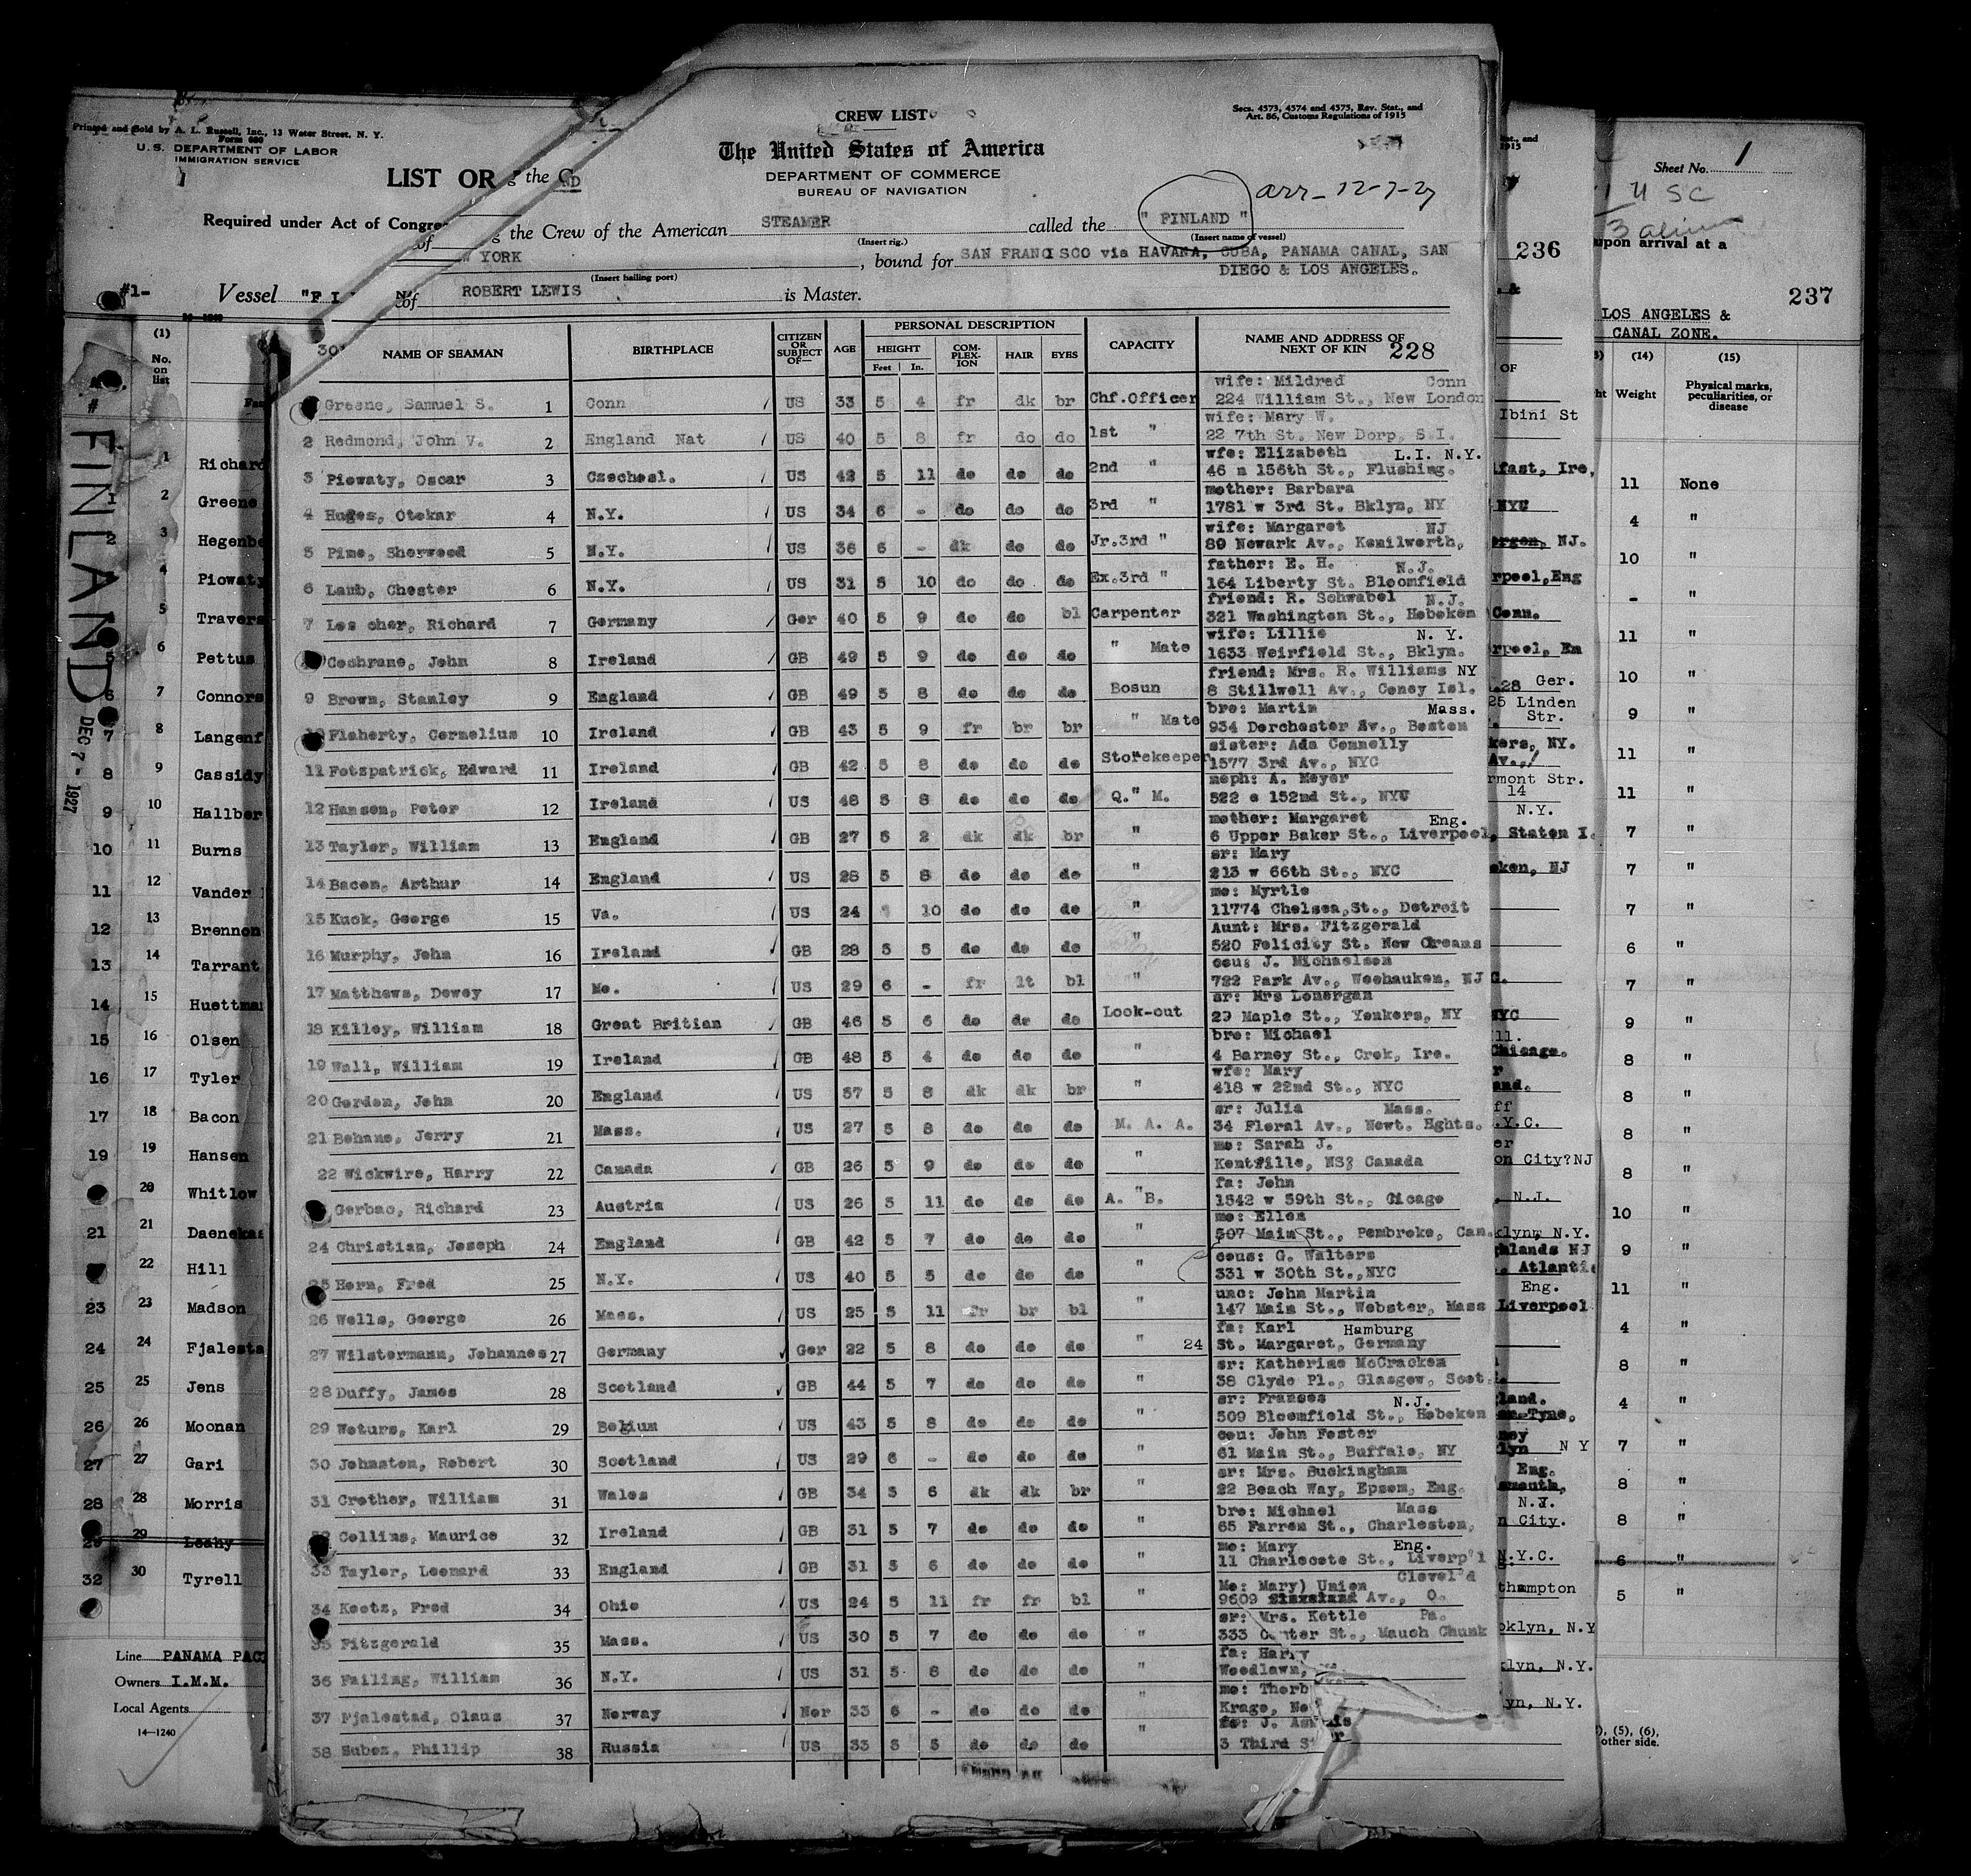 Printed and Sold by A. L. Russell, Inc., 13 Water Street, N. Y.
Form 680
U. S. DEPARTMENT OF LABOR
IMMIGRATION SERVICE
LIST OR
Required under Act of Congre
#1-
Vessel "FI
CREW LIST
Secs. 4573, 4574 and 4575, Rev. Stat., and
Art. 86, Customs Regulations of 1915
The United States of America
DEPARTMENT OF COMMERCE
BUREAU OF NAVIGATION
arr- 12-7-27
g the Crew of the American STEAMER called the " FINLAND "
(Insert rig.) (Insert name of vessel)
of YORK, bound for SAN FRANCISCO via HAVANA, CUBA, PANAMA CANAL, SAN
(Insert hailing port) DIEGO & LOS ANGELES.
of ROBERT LEWIS is Master.
NAME OF SEAMAN BIRTHPLACE CITIZEN OR SUBJECT OF— AGE PERSONAL DESCRIPTION CAPACITY NAME AND ADDRESS OF NEXT OF KIN 228
HEIGHT COMPLEXION HAIR EYES
Feet In.
Greene, Samuel S. 1 Conn US 33 5 4 fr dk br Chf.Officer wife: Mildred Conn
224 William St., New London
2 Redmond, John V. 2 England Nat US 40 5 8 fr do do 1st " wife: Mary W.
22 7th St. New Dorp, S.I.
3 Piowaty, Oscar 3 Czechosl. US 42 5 11 do do do 2nd " wfe: Elizabeth L.I. N.Y.
46 n 156th St., Flushing.
4 Huges, Otokar 4 N.Y. US 34 6 - do do do 3rd " mother: Barbara
1781 w 3rd St. Bklyn, NY
5 Pine, Sherwood 5 N.Y. US 36 6 - dk do do Jr.3rd " wife: Margaret NJ
89 Newark Av., Kenilworth,
6 Lamb, Chester 6 N.Y. US 31 5 10 do do do Ex.3rd " father: E. H. N.J.
164 Liberty St. Bloomfield
7 Les cher, Richard 7 Germany Ger 40 5 9 do do bl Carpenter friend: R. Schwabel N.J.
321 Washington St., Hoboken
Cochrane, John 8 Ireland GB 49 5 9 do do do " Mate wife: Lillie N. Y.
1633 Weirfield St., Bklyn.
9 Brown, Stanley 9 England GB 49 5 8 do do do Bosun friend: Mrs. R. Williams NY
8 Stillwell Av., Coney Isl.
Flaherty, Cornelius 10 Ireland GB 43 5 9 fr br br " Mate bro: Martin Mass.
934 Dorchester Av., Boston
11 Fotzpatrick, Edward 11 Ireland GB 42 5 8 do do do Storekeeper sister: Ada Connelly
1577 3rd Av., NYC
12 Hansen, Peter 12 Ireland US 48 5 8 do do do Q." M. neph: A. Meyer
522 e 152nd St., NYC
13 Tayler, William 13 England GB 27 5 2 dk dk br " mother: Margaret Eng.
6 Upper Baker St., Liverpool
14 Bacon, Arthur 14 England US 28 5 8 do do do " sr: Mary
213 w 66th St., NYC
15 Kuck, George 15 Va. US 24 10 do do do " mo: Myrtle
11774 Chelsea,St., Detroit
16 Murphy, John 16 Ireland GB 28 5 5 do do do " Aunt: Mrs. Fitzgerald
520 Felicity St. New Orleans
17 Matthews, Dewey 17 Mo. US 29 6 - fr lt bl " cou: J. Michaelson
722 Park Av., Weehauken, NJ
18 Killey, William 18 Great Britian GB 46 5 6 do do do Look-out sr: Mrs Lonergan
29 Maple St., Yonkers, NY
19 Wall, William 19 Ireland GB 48 5 4 do do do " bro: Michael
4 Barney St., Crok, Ire.
20 Gordon, John 20 England US 37 5 8 dk dk br " wfe: Mary
418 w 22nd St., NYC
21 Behane, Jerry 21 Mass. US 27 5 8 do do do M. A. A. sr: Julia Mass.
34 Floral Av., Newt. Hghts.
22 Wickwire, Harry 22 Canada GB 26 5 9 do do do " mo: Sarah J.
Kentfille, NS? Canada
Gerbac, Richard 23 Austria US 26 5 11 do do do A. "B. fa: John
1542 w 59th St., Cicago
24 Christian, Joseph 24 England GB 42 5 7 do do do " mo: Ellen
507 Main St., Pembroke, Can.
25 Horn, Fred 25 N.Y. US 40 5 5 do do do " cous: G. Walters
331 w 30th St.,NYC
26 Wells, George 26 Mass. US 25 5 11 fr br bl " unc: John Martin
147 Main St., Webster, Mass
27 Wilstermann, Johannes 27 Germany Ger 22 5 8 do do do " 24 fa: Karl Hamburg
St. Margaret, Germany
28 Duffy, James 28 Scotland GB 44 5 7 do do do " sr: Katherine McCracken
38 Clyde Pl., Glasgow, Scot.
29 Woturs, Karl 29 Belgium US 43 5 8 do do do " sr: Frances N.J.
509 Bloomfield St., Hoboken
30 Johnston, Robert 30 Scotland US 29 6 - do do do " cou: John Foster
61 Main St., Buffalo, NY
31 Crother, William 31 Wales GB 34 5 6 dk dk br " sr: Mrs. Buckingham
22 Beach Way, Epsom, Eng.
Collins, Maurice 32 Ireland GB 31 5 7 do do do " bro: Michael Mass
65 Farren St., Charleston,
33 Tayler, Leonard 33 England GB 31 5 6 do do do " mo: Mary Eng.
11 Charlecote St., Liverp'l
34 Kootz, Fred 34 Ohio US 24 5 11 fr fr bl " Mo: Mary) Union Clevel'd
9609 Av., O.
35 Fitzgerald 35 Mass. US 30 5 7 do do do " sr: Mrs. Kettle Pa.
333 Center St., Mauch Chunk
36 Failing, William 36 N.Y. US 31 5 8 do do do " fa: Harry
Woodlawn,
37 Fjalestad, Olaus 37 Norway Nor 33 6 - do do do " mo: Thorb
Krago, No
38 Subez, Phillip 38 Russia US 33 5 5 do do do " J. As
3 Third S
FINLAND
DEC 7 - 1927
(1) (2)
No. on list
1 Richard
2 Greene
3 Hegenbe
4 Piowaty
5 Travers
6 Pettus
7 Connors
8 Langenf
9 Cassidy
10 Hallber
11 Burns
12 Vander
13 Brennon
14 Tarrant
15 Huettma
16 Olsen
17 Tyler
18 Bacon
19 Hansen
20 Whitlow
21 Daenekas
22 Hill
23 Madson
24 Fjalesta
25 Jens
26 Moonan
27 Gari
28 Morris
29 Leahy
30 Tyrell
Line PANAMA PAC
Owners I.M.M.
Local Agents
14—1240
236
Sheet No. 1
4 USC
3 alien
upon arrival at a
237
LOS ANGELES &
CANAL ZONE.
(14) (15)
Weight Physical marks, peculiarities, or disease
11 None
4 "
10 "
- "
11 "
10 "
9 "
11 "
11 "
7 "
7 "
7 "
6 "
7 "
9 "
8 "
8 "
8 "
8 "
10 "
9 "
11 "
4 "
8 "
4 "
7 "
8 "
8 "
6 "
5 "
), (5), (6),
other side.